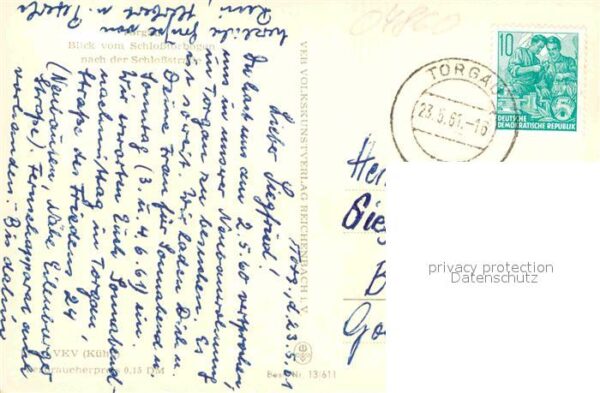 Torg., d. 23.5.61
Lieber Siegfried!
Du hast uns am 2.5.60 versprochen,
uns in unserer Neubauwohnung
in Torgau zu besuchen. Es
ist soweit. Wir laden Dich u.
Deine Frau für Sonnabend u.
Sonntag (3. u. 4.6.61) ein.
Wir erwarten Euch Sonnabend-
nachmittag in Torgau,
Straße des Friedens 24
(Neubauten, Nähe Eilenburger
Straße). Fernsehapparat auch
vorhanden. Bis dahin
herzliche Grüße von
Blick vom Schloßtorbogen
nach der Schloßstraße
VEB VOLKSKUNSTVERLAG REICHENBACH I. V.
VEV (Kühn)
Verbraucherpreis 0,15 DM
Best.-Nr. 13 611
04860
TORGAU
23.5.61.-16
10
DEUTSCHE
DEMOKRATISCHE REPUBLIK
privacy protection
Datenschutz